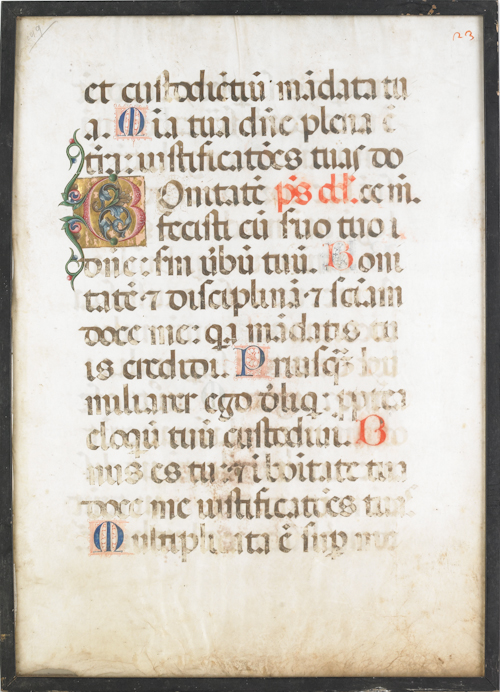 et custodiētiū mādata tu
a. Mia tua dn̄e plena ē
tr̄a: iustificatōes tuas do
Bonitatē p̄s dd̄. ce m̄.
fecisti cū suo tuo
dn̄e: sm̄ ūbū tuū. Boni
tatē ⁊ disciplinā ⁊ sciam
doce me: qa mādatis tu
is credidi. Priusq̄
miliarer ego
eloqū tuū custodiui. B
nus es tu: ⁊ i boitate tua
doce me iustificatōes tuas
Multiplicata ē sup me
23